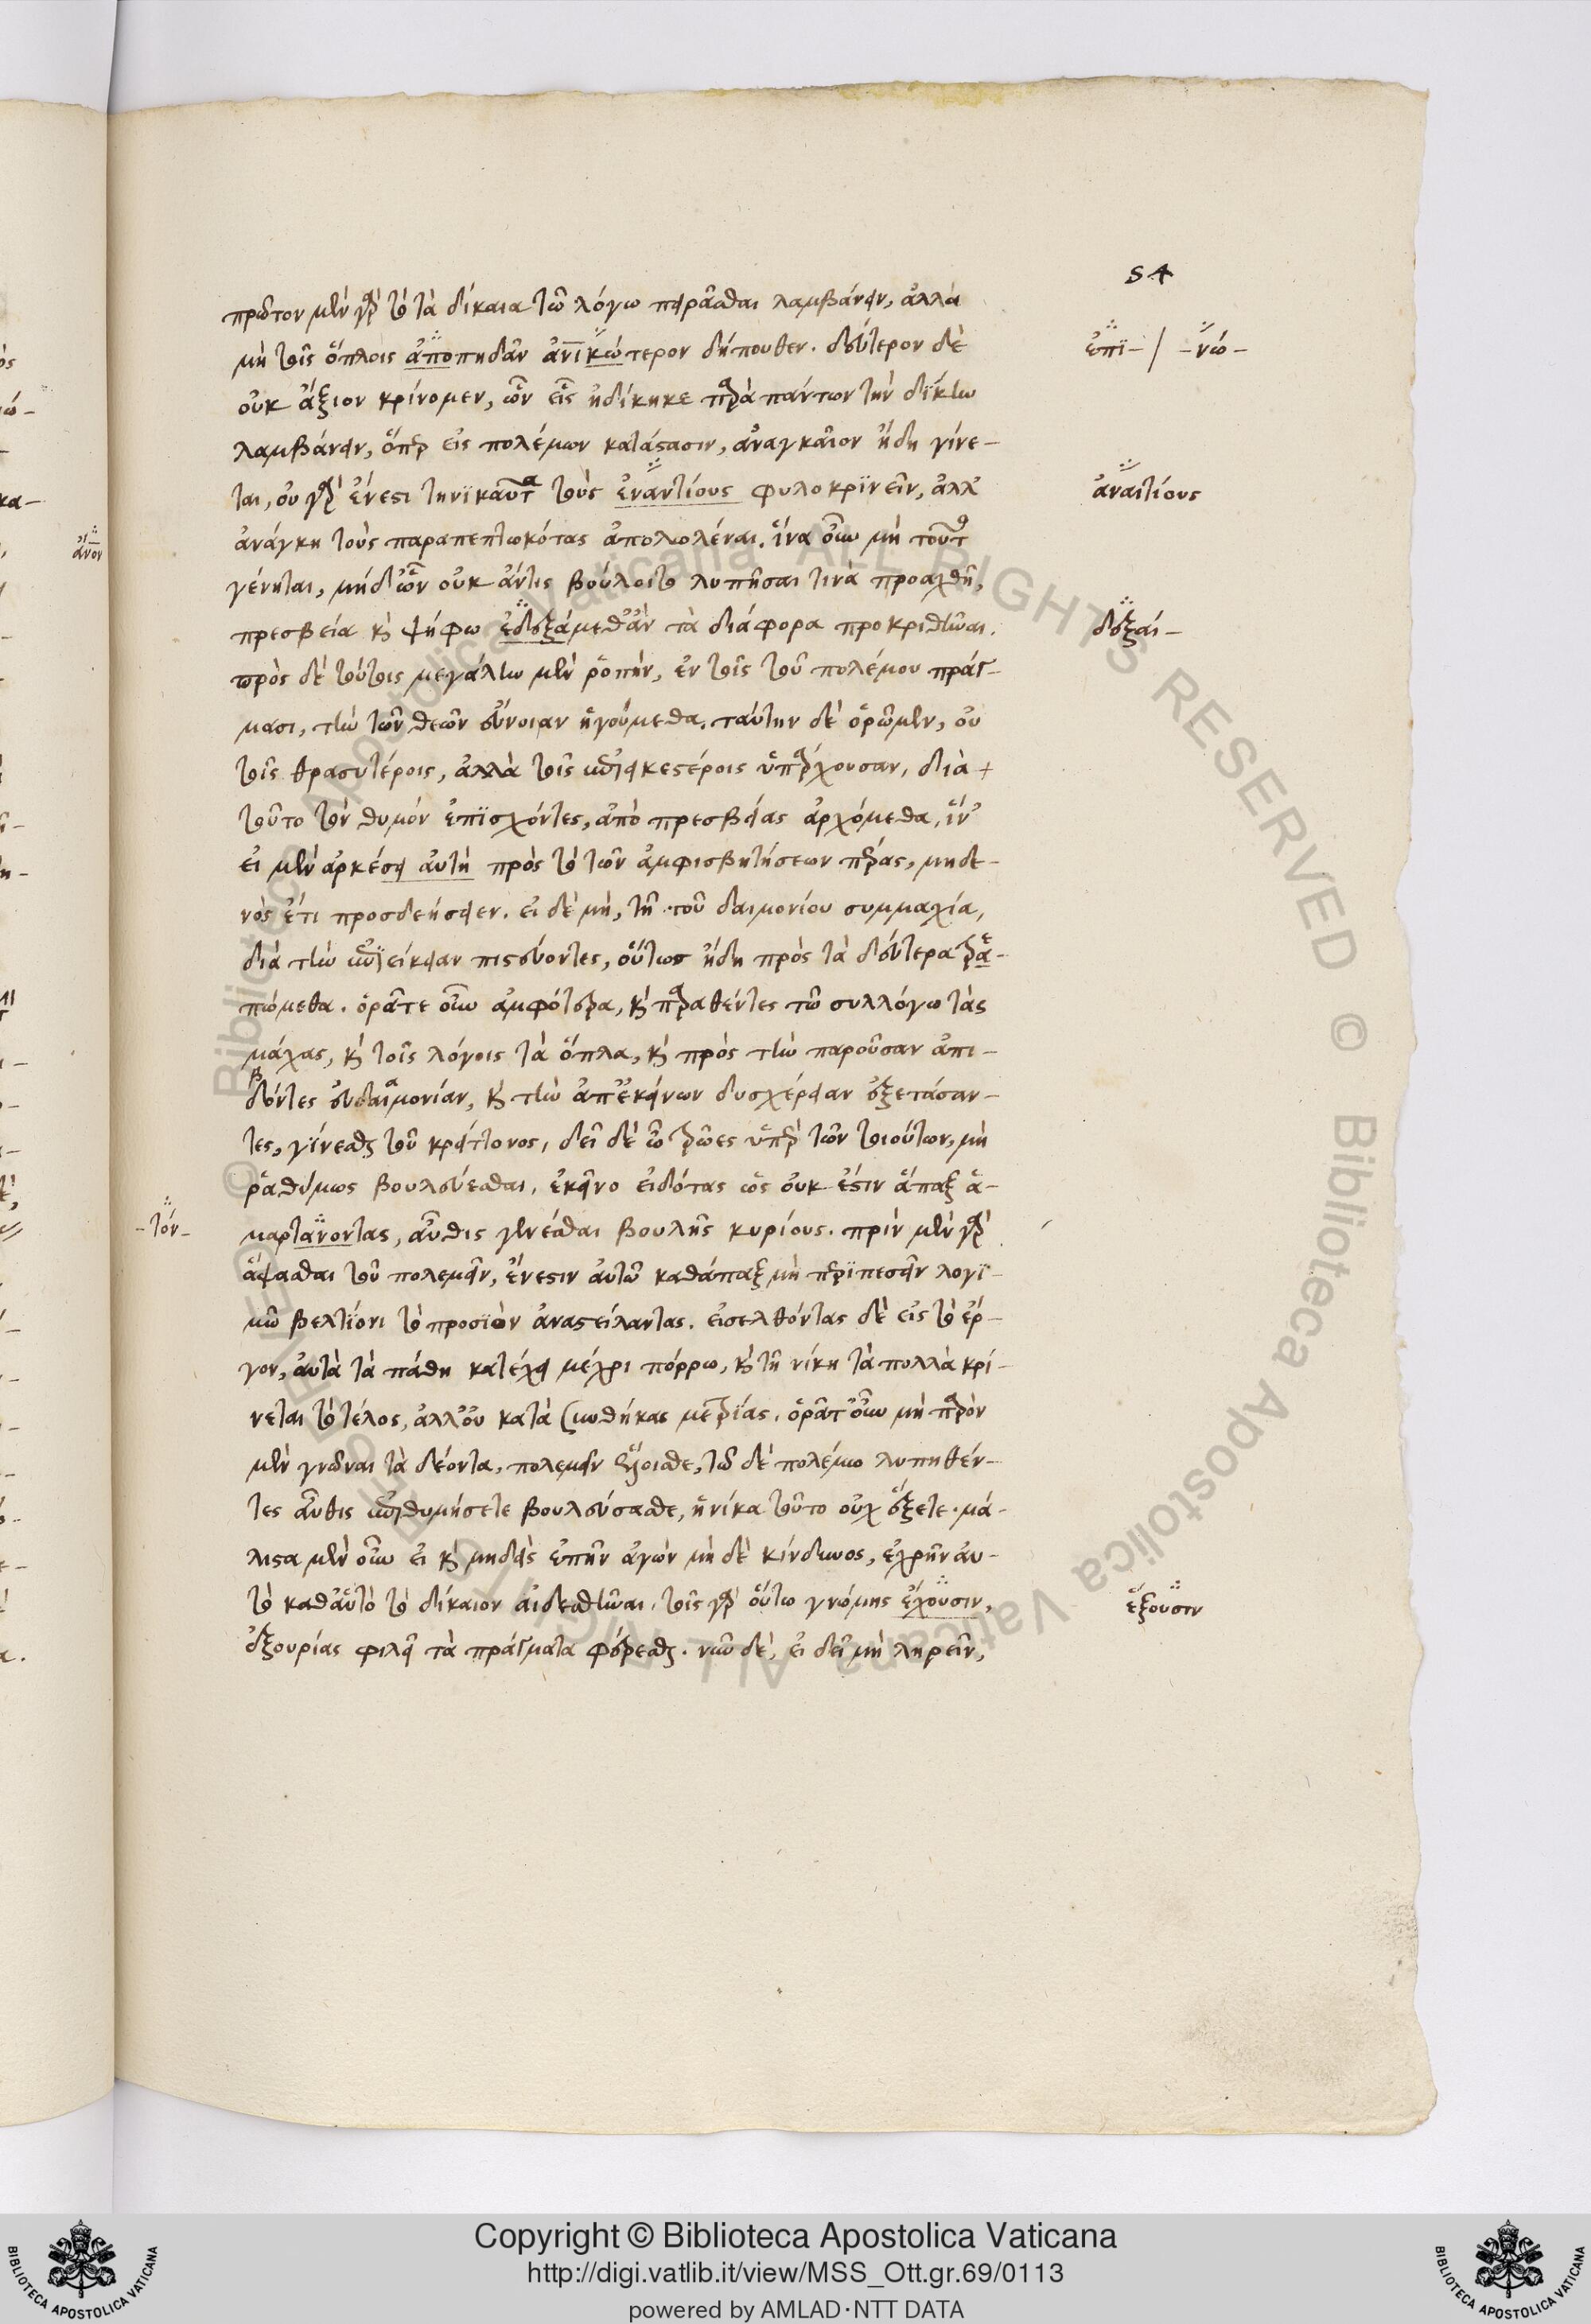 54
πρῶτον μὲν γὰρ τὸ τὰ δίκαια τῶ λόγω πειρᾶσθαι λαμβάνειν, ἀλλὰ
μὴ τοῖς ὅπλοις ἀποπηδᾶν ἀνικώτερον δήπουθεν. δεύτερον δὲ
ἐπϊ- / -νώ-
οὐκ ἄξιον κρίνομεν, ὧν εἷς ἠδίκηκε παρὰ πάντων τὴν δίκην
λαμβάνειν, ὅπερ εἰς πολέμων κατάστασιν, ἀναγκαῖον ἤδη γίνε-
ται, οὐ γὰρ ἔνεστι τηνϊκαῦτα τοὺς ἐναντίους φυλοκρϊνεῖν, ἀλλ'
ἀναιτίους
ἀνάγκη τοὺς παραπεπτωκότας ἀπολωλέναι. ἵνα οὖν μὴ τοῦτο
γένηται, μηδ' ὧν οὐκ ἄν τις βούλοιτο λυπῆσαι τινὰ προαχθῆ,
πρεσβεία καὶ ψήφω ἐδεξάμεθ' ἂν τὰ διάφορα προκριθῆναι.
δεξαί-
πρὸς δὲ τούτοις μεγάλην μὲν ῥοπὴν, ἐν τοῖς τοῦ πολέμου πράγ-
μασι, τὴν τῶν θεῶν εὔνοιαν ἡγούμεθα. ταύτην δὲ ὁρῶμεν, οὐ
τοῖς θρασυτέροις, ἀλλὰ τοῖς ἐπιεικεστέροις ὑπάρχουσαν, διὰ +
τοῦτο τὸν θυμὸν ἐπϊσχόντες, ἀπὸ πρεσβείας ἀρχόμεθα, ἵν'
εἰ μὲν ἀρκέσει αὐτὴ πρὸς τὸ τῶν ἀμφισβητήσεων πέρας, μηδε-
νὸς ἔτι προσδεήσειεν. εἰ δὲ μὴ, τῆ τοῦ δαιμονίου συμμαχία,
διὰ τὴν ἐπιείκειαν πιστεύοντες, οὕτως ἤδη πρὸς τὰ δεύτερα τρα-
πώμεθα. ὁρᾶτε οὖν ἀμφότερα, καὶ παραθέντες τῶ συλλόγω τὰς
μάχας, καὶ τοῖς λόγοις τὰ ὅπλα, καὶ πρὸς τὴν παροῦσαν ἀπι-
δόντες εὐδαιμονίαν, καὶ τὴν ἀπ' ἐκείνων δυσχέρειαν ἐξετάσαν-
τες, γίνεσθε τοῦ κρείττονος, δεῖ δὲ ὦ τρῶες ὑπὲρ τῶν τοιούτων, μὴ
ῥαθύμως βουλεύεσθαι, ἐκεῖνο εἰδότας ὡς οὐκ ἔστιν ἅπαξ ἁ-
μαρτάνοντας, αὖθις γενέσθαι βουλῆς κυρίους. πρὶν μὲν γὰρ
-τόν-
ἅψασθαι τοῦ πολεμεῖν, ἔνεστιν αὐτῶ καθάπαξ μὴ περϊπεσεῖν λογϊ-
μῶ βελτίονι τὸ προσϊὸν ἀναστείλαντας. εἰσελθόντας δὲ εἰς τὸ ἔρ-
γον, αὐτὰ τὰ πάθη κατέχει μέχρι πόρρω, καὶ τῆ νίκη τὰ πολλὰ κρί-
νεται τὸ τέλος, ἀλλ' οὐ κατὰ συνθήκας μετρίας. ὁρᾶτ' οὖν μὴ παρὸν
μὲν γνῶναι τὰ δέοντα, πολεμεῖν ἕλοισθε, τῶ δὲ πολέμω λυπηθέν-
τες αὖθις ἐπιθυμήσετε βουλεύσασθε, ἡνίκα τοῦτο οὐχ' ἕξετε. μά-
λιστα μὲν οὖν εἰ καὶ μηδεὶς ἐπῆν ἀγὼν μὴ δὲ κίνδυνος, ἐχρῆν αὐ-
τὸ καθ' αὑτὸ τὸ δίκαιον αἰδεσθῆναι. τοῖς γὰρ οὕτω γνώμης ἐχούσιν,
ἕξουσιν
ἐξουρίας φιλεῖ τὰ πράγματα φέρεσθαι. νῦν δὲ, εἰ δεῖ μὴ ληρεῖν,
Copyright © Biblioteca Apostolica Vaticana
http://digi.vatlib.it/view/MSS_Ott.gr.69/0113
powered by AMLAD·NTT DATA